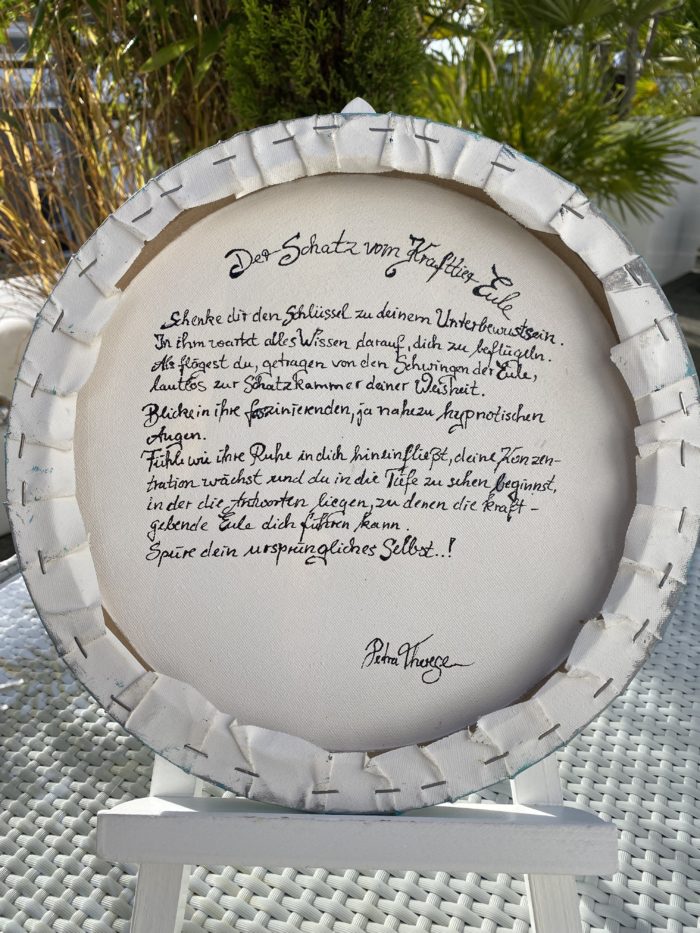 Der Schatz vom Krafttier Eule
Schenke dir den Schlüssel zu deinem Unterbewusstsein.
In ihm wartet alles Wissen darauf, dich zu beflügeln.
Als flögest du, getragen von den Schwingen der Eule,
lautlos zur Schatzkammer deiner Weisheit.
Blicke in ihre faszinierenden, ja nahezu hypnotischen
Augen.
Fühle wie ihre Ruhe in dich hineinfließt, deine Konzen-
tration wächst und du in die Tiefe zu sehen beginnst,
in der die Antworten liegen, zu denen die kraft-
gebende Eule dich führen kann.
Spüre dein ursprüngliches Selbst..!
Petra